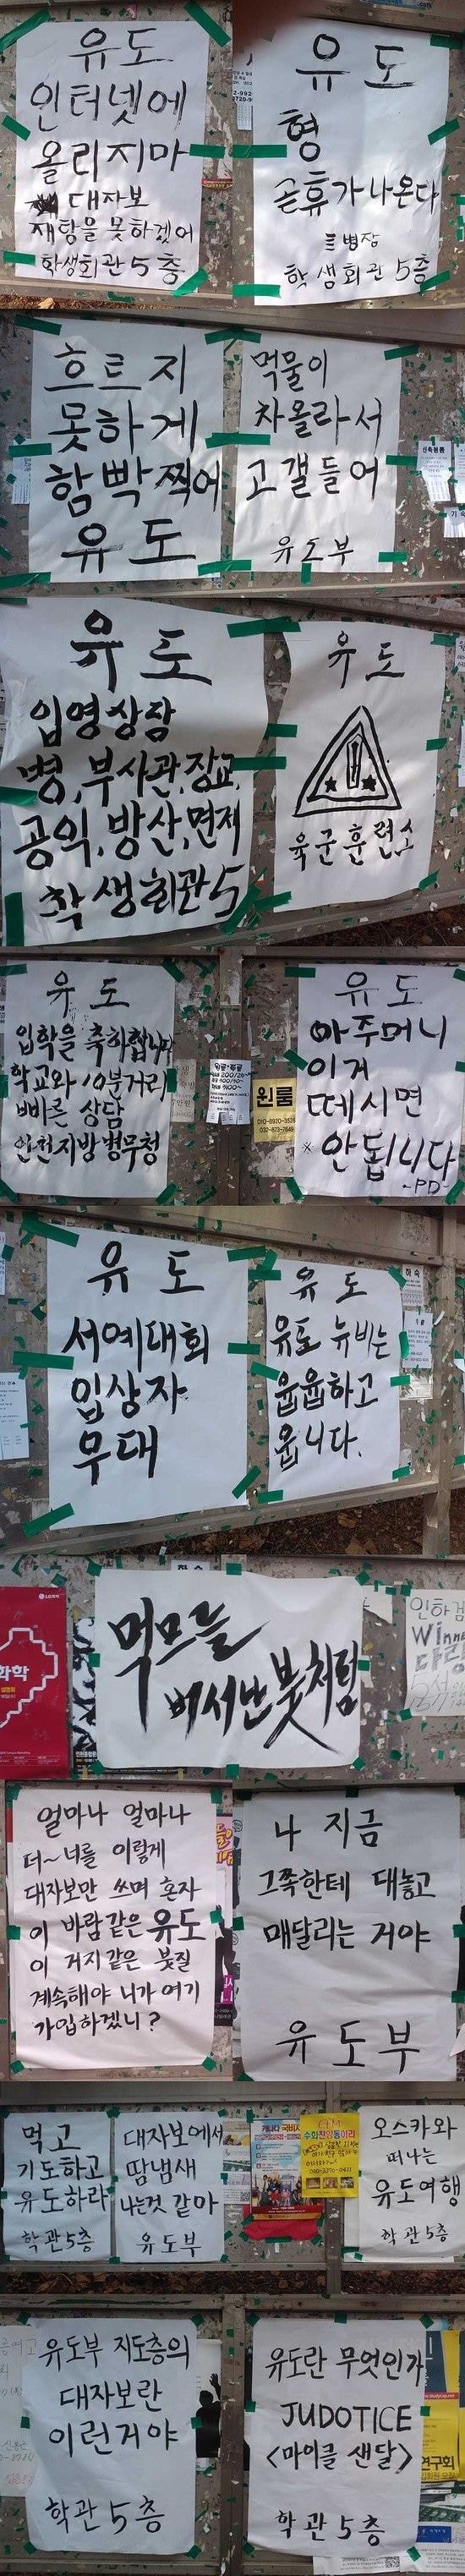 유도
인터넷에
올리지마
대자보
재탕을 못하겠어
학생회관 5층
유도
형
곧 휴가 나온다
병장
학생회관 5층
흐트지
못하게
함빡 찍어
유도
먹물이
차올라서
고갤들어
유도부
유도
입영상담
병, 부사관, 장교,
공익, 방산, 면제
학생회관 5
유도
육군훈련소
유도
입학을 축하합니다
학교와 10분거리
빠른 상담
인천지방병무청
원룸
유도
아주머니
이거
떼시면
※ 안됩니다
-PD-
유도
서예대회
입상자
우대
하숙
유도
유도 뉴비는
윱윱하고
웁니다.
먹므를
버서난 붓처럼
화학
인하검
얼마나 얼마나
더~너를 이렇게
대자보만 쓰며 혼자
이 바람같은 유도
이 거지같은 붓질
계속해야 니가 여기
가입하겠니?
나 지금
그쪽한테 대놓고
매달리는 거야
유도부
먹고
기도하고
유도하라
학관5층
대자보에서
땀냄새
나는것 같아
유도부
오스카와
떠나는
유도여행
학관5층
유도부 지도층의
대자보란
이런거야
학관5층
유도란 무엇인가
JUDOTICE
<마이클 샌달>
학관5층
연구회